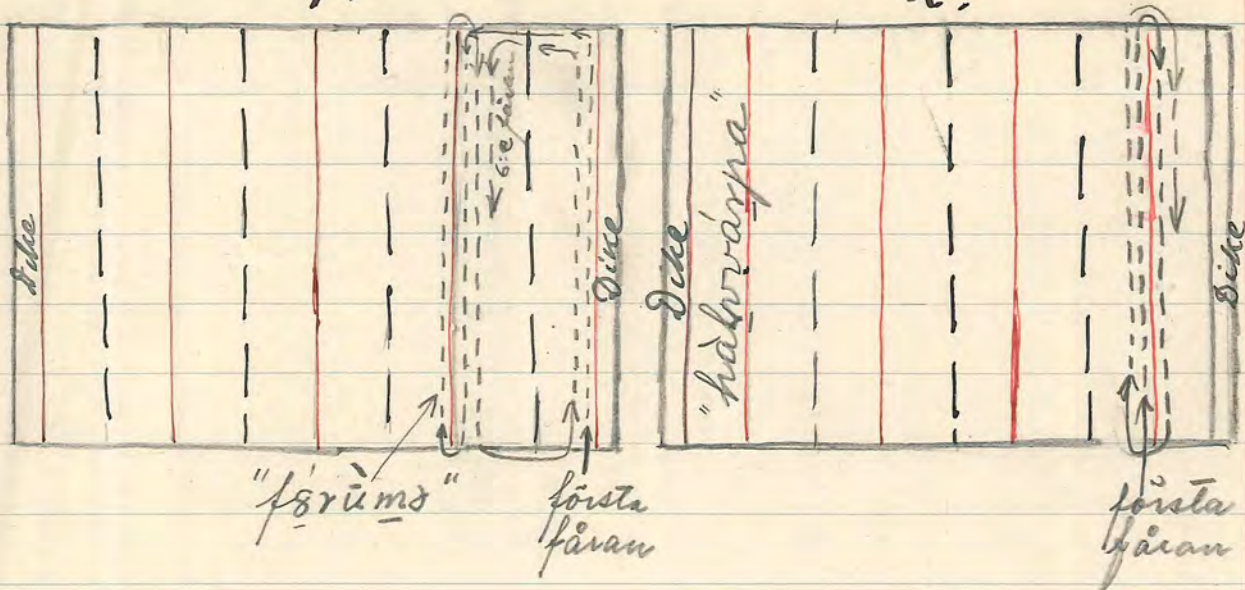 Dike
6:e fåran
Dike
Dike
"hàlvvárpa"
Dike
"fərùmə"
första
fåran
första
fåran